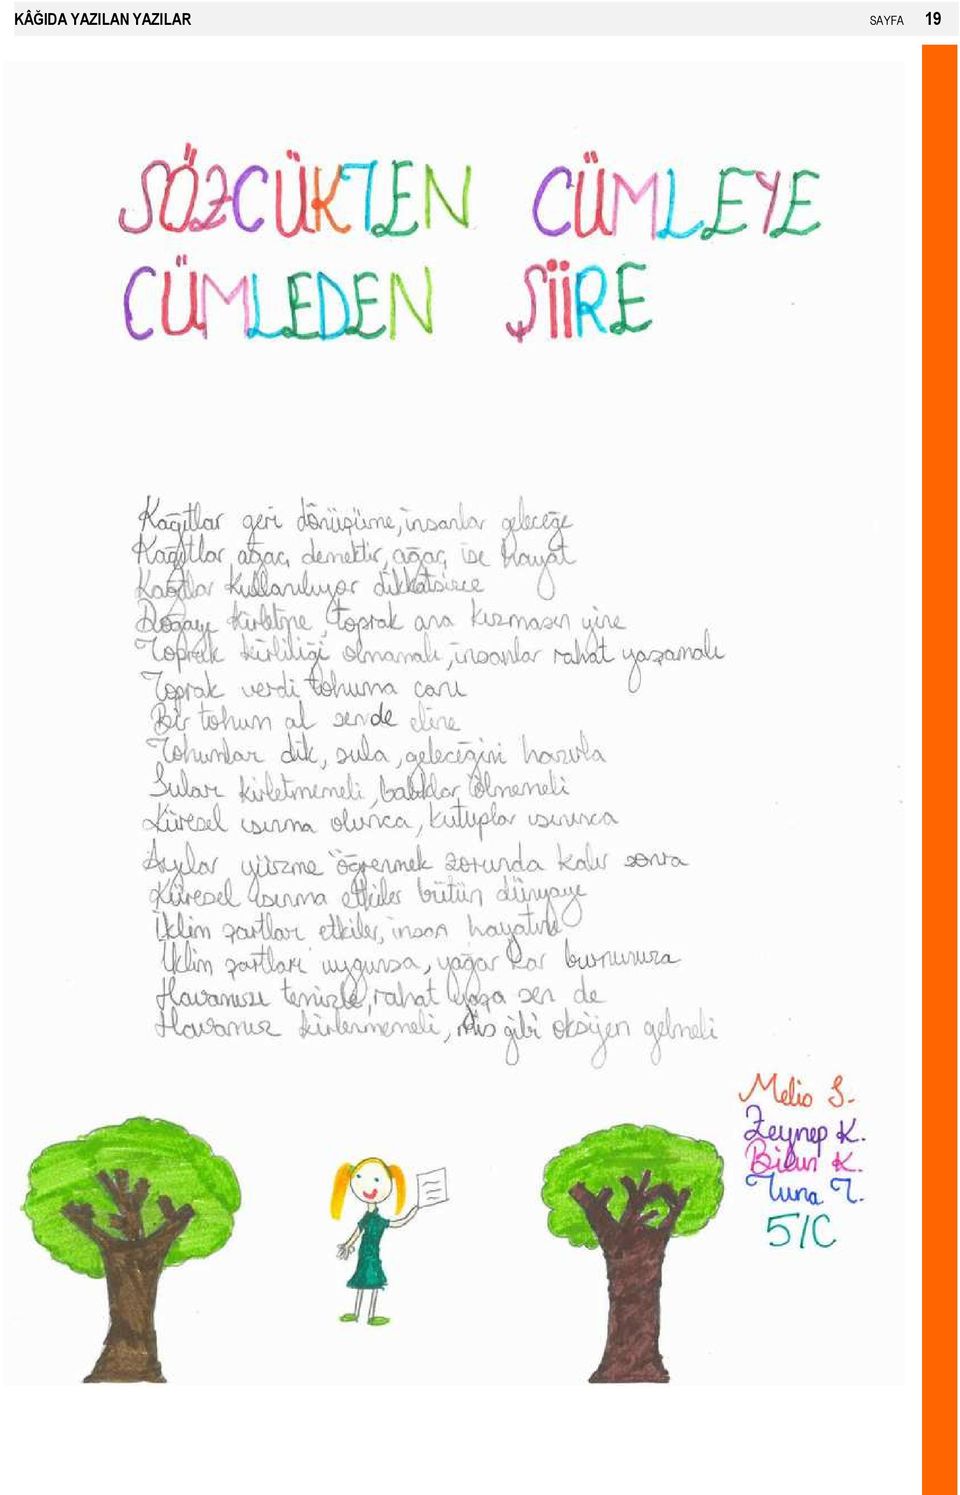 KÂĞIDA YAZILAN YAZILAR SAYFA 19
SÖZCÜKTEN CÜMLEYE
CÜMLEDEN ŞİİRE
Kağıtlar geri dönüşüme, insanlar geleceğe
Kağıtlar ağaç demektir, ağaç ise hayat
Kağıtlar kullanılıyor dikkatsizce
Doğayı kirletme, toprak ana kızmasın yine
Toprak kirliliği olmamalı, insanlar rahat yaşamalı
Toprak verdi tohuma canı
Bir tohum al sende eline
Tohumları dik, sula, geleceğini hazırla
Suları kirletmemeli, balıklar ölmemeli
Küresel ısınma olunca, kutuplar ısınınca
Ayılar yüzme öğrenmek zorunda kalır sonra
Küresel ısınma etkiler bütün dünyayı
İklim şartları etkiler, insan hayatını
İklim şartları uygunsa, yağar kar burnunuza
Havanızı temizle, rahat yaşa sen de
Havamız kirlenmemeli, mis gibi oksijen gelmeli
Melis S.
Zeynep K.
K.
Tuna T.
5/C